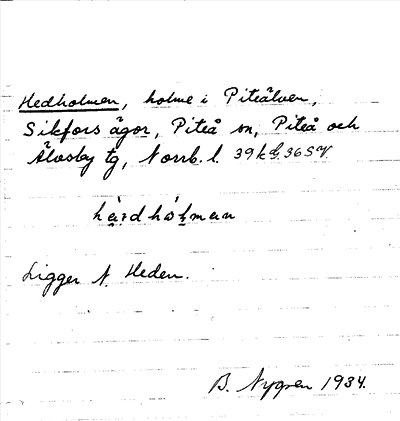 Hedholmen, holme i Piteälven,
Sikfors ägor, Piteå sn, Piteå och
Älvsby tg, Norrb. l. 39 k
Ligger N. Heden.
B. Nygren 1934.